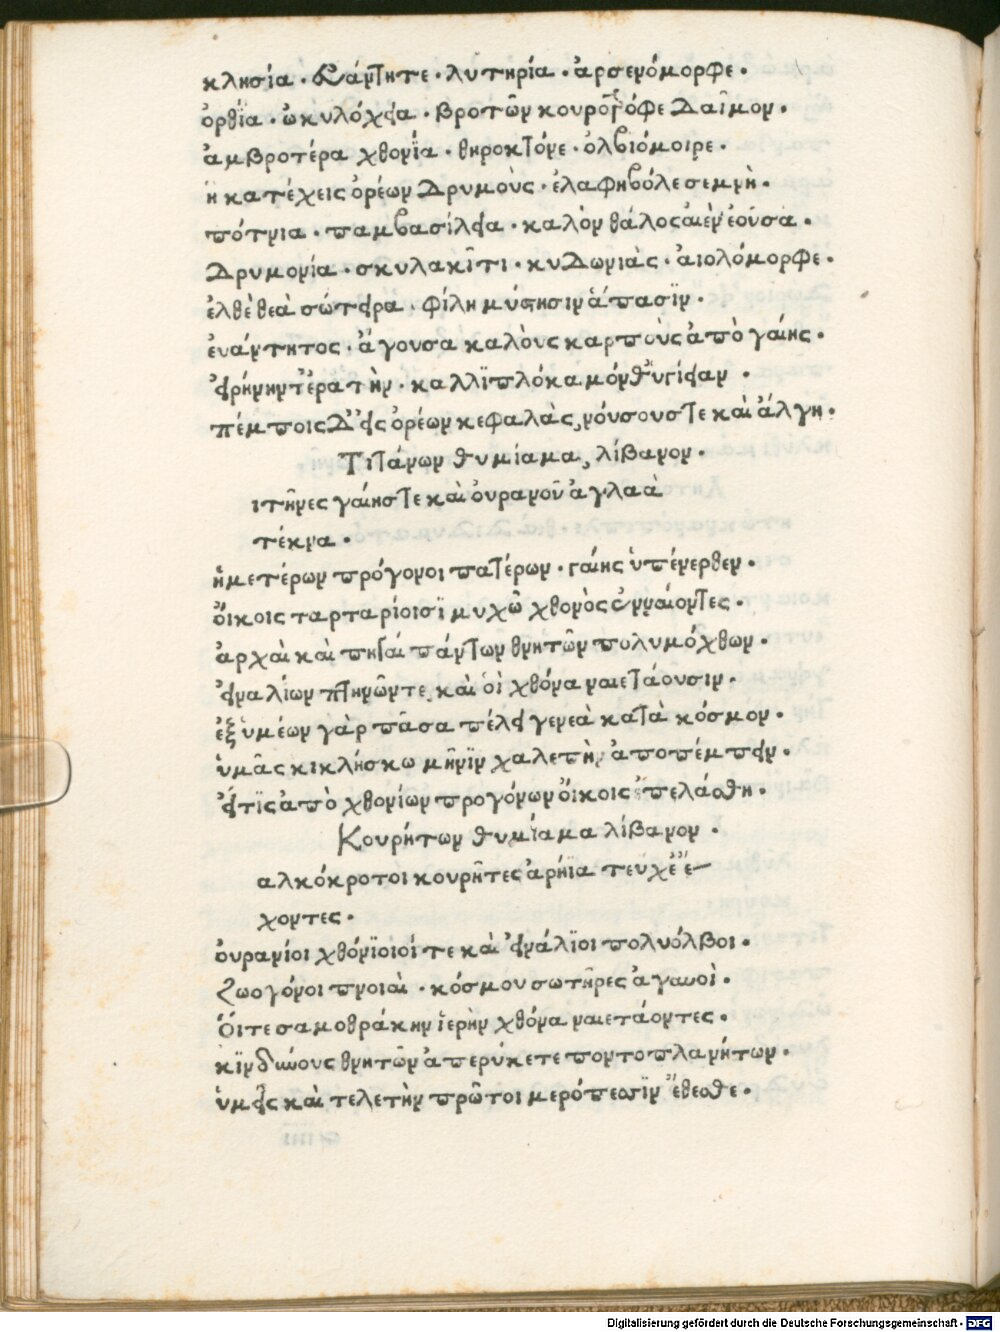 κλησία · εὐάντητε · λυτηρία · ἀρσενόμορφε ·
ὀρθία · ὠκυλόχεια · βροτῶν κουροτρόφε δαῖμον ·
ἀμβροτέρα χθονία · θηροκτόνε · ὀλβιόμοιρε ·
ἣ κατέχεις ὀρέων δρυμοὺς · ἐλαφηβόλε σεμνὴ ·
πότνια · παμβασίλεια · καλὸν θάλος αἰὲν ἐοῦσα ·
Δρυμονία · σκυλακῖτι · κυδωνιὰς · αἰολόμορφε ·
ἐλθὲ θεὰ σώτειρα · φίλη μύστησιν ἅπασϊν ·
ἐυάντητος · ἄγουσα καλοὺς καρποὺς ἀπὸ γαίης ·
εἰρήνην τ' ἐρατὴν · καλλϊπλόκαμόν θ' ὑγίειαν ·
πέμποις δ' εἰς ὀρέων κεφαλὰς, νόυσους τε καὶ ἄλγη ·
Τιτάνων θυμίαμα, λίβανον ·
ιτῆνες γαίης τε καὶ ουρανοῦ ἀγλαὰ
τέκνα ·
ἡμετέρων πρόγονοι πατέρων · γαίης ὑπένερθεν ·
ὄικοις ταρταρίοισϊ μυχῶ χθονὸς ἐνναίοντες ·
ἀρχαὶ καὶ πηγαὶ πάντων θνητῶν πολυμόχθων ·
εἰναλίων πτηνῶν τε, καὶ οἳ χθόνα ναιετάουσιν ·
ἐξ ὑμέων γὰρ πᾶσα πέλει γενεὰ κατὰ κόσμον ·
ὑμᾶς κικλήσκω μῆνϊν χαλεπὴν ἀποπέμπειν ·
εἴτϊς ἀπὸ χθονίων προγόνων ὄικοις ἐπελάσθη ·
Κουρήτων θυμίαμα λίβανον ·
αλκόκροτοι κουρῆτες ἀρήϊα τεύχε' ἔ-
χοντες ·
ὀυρανίοι χθόνϊοιοί τε καὶ εἰνάλϊοι πολυόλβοι ·
Ζωογόνοι πνοιαὶ · κόσμου σωτῆρες ἀγαυοὶ ·
Ὅιτε σαμοθράκην ἱερὴν χθόνα ναιετάοντες ·
κϊνδύνους θνητῶν ἀπερύκετε ποντοπλανήτων ·
ὑμεῖς καὶ τελετὴν πρῶτοι μερόπεσϊν ἔθεσθε ·
Digitalisierung gefördert durch die Deutsche Forschungsgemeinschaft - DFG